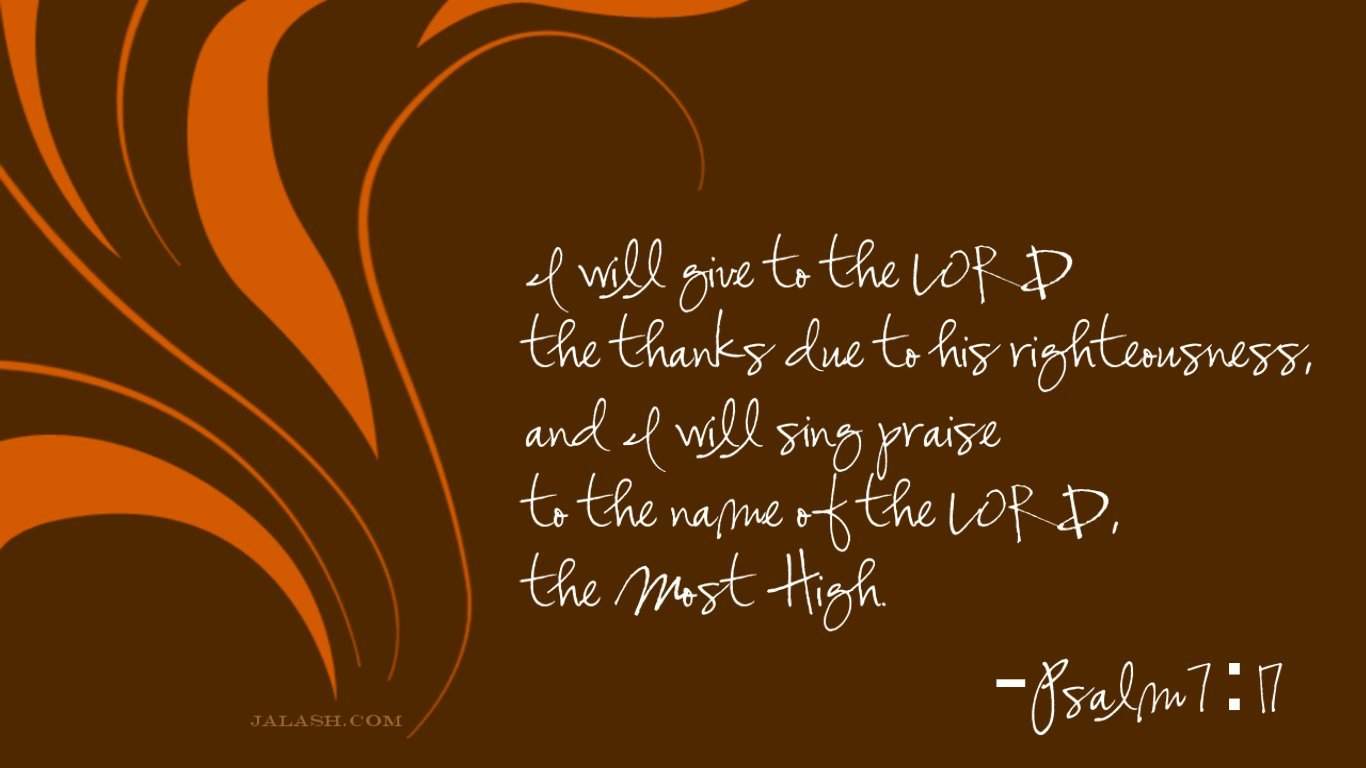 I will give to the LORD
the thanks due to his righteousness,
and I will sing praise
to the name of the LORD,
the Most High.
-Psalm 7:17
JALASH.COM